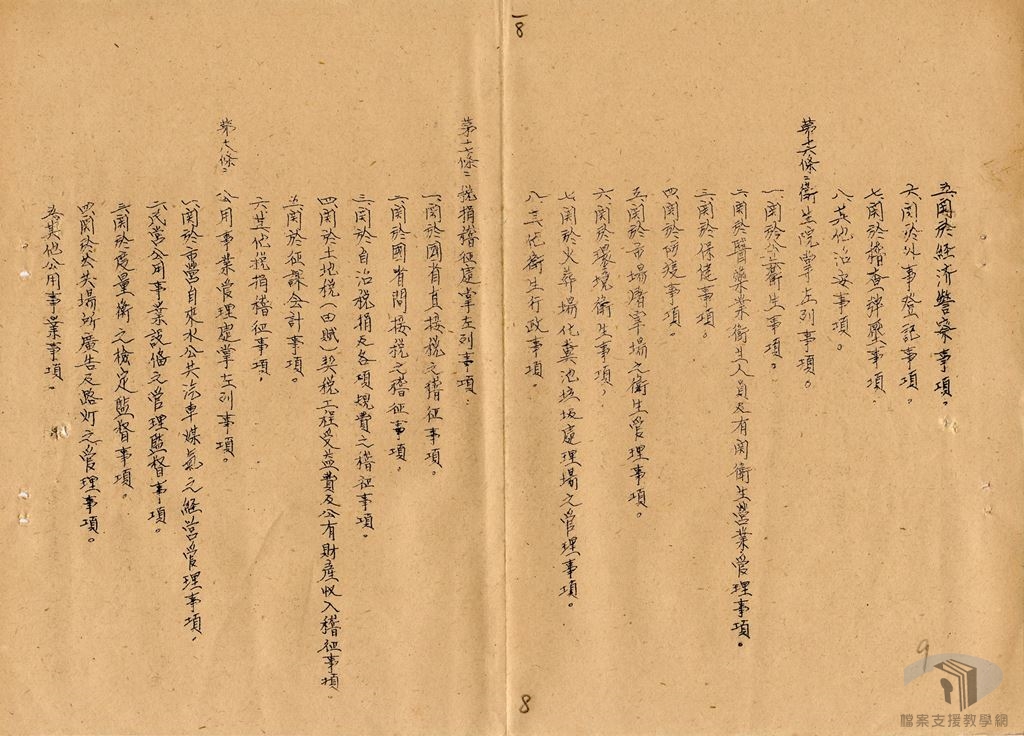 8
五関於経済警察事項。
六関於外事登記事項。
七関於稽查弹壓事項。
八其他治安事項。
第十六條：衛生院掌左列事項。
一関於公共衛生事項。
二関於醫藥業衛生人員及有関衛生營業管理事項。
三関於保健事項。
四関於防疫事項。
五関於市場屠宰場之衛生管理事項。
六関於環境衛生事項，
七関於火葬場化糞池垃圾處理場之管理事項。
八其他衛生行政事項。
第十七條：税捐稽征處掌左列事項：
一関於國省直接税之稽征事項。
二関於國省間接税之稽征事項。
三関於自治税捐及各項規費之稽征事項。
四関於土地税（田賦）契税工程受益費及公有財產收入稽征事項。
五関於征課会計事項。
六其他税捐稽征事項，
第十八條：公用事業管理處掌左列事項。
一関於市營自來水公共汽車煤氣之経営管理事項，
二民営公用事業設偹之管理監督事項。
三関於度量衡之檢定監督事項。
四関於公共場所廣告及路灯之管理事項。
五其他公用事業事項。
8
9
檔案支援教學網